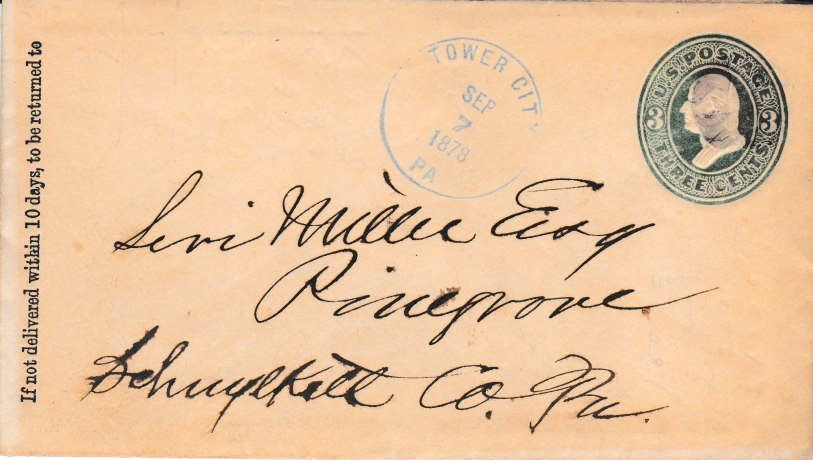 If not delivered within 10 days, to be returned to
TOWER CITY
SEP
7
1878
PA
U.S. POSTAGE
3 3
THREE CENTS
Levi Miller Esq
Pinegrove
Schuylkill Co. Pa.